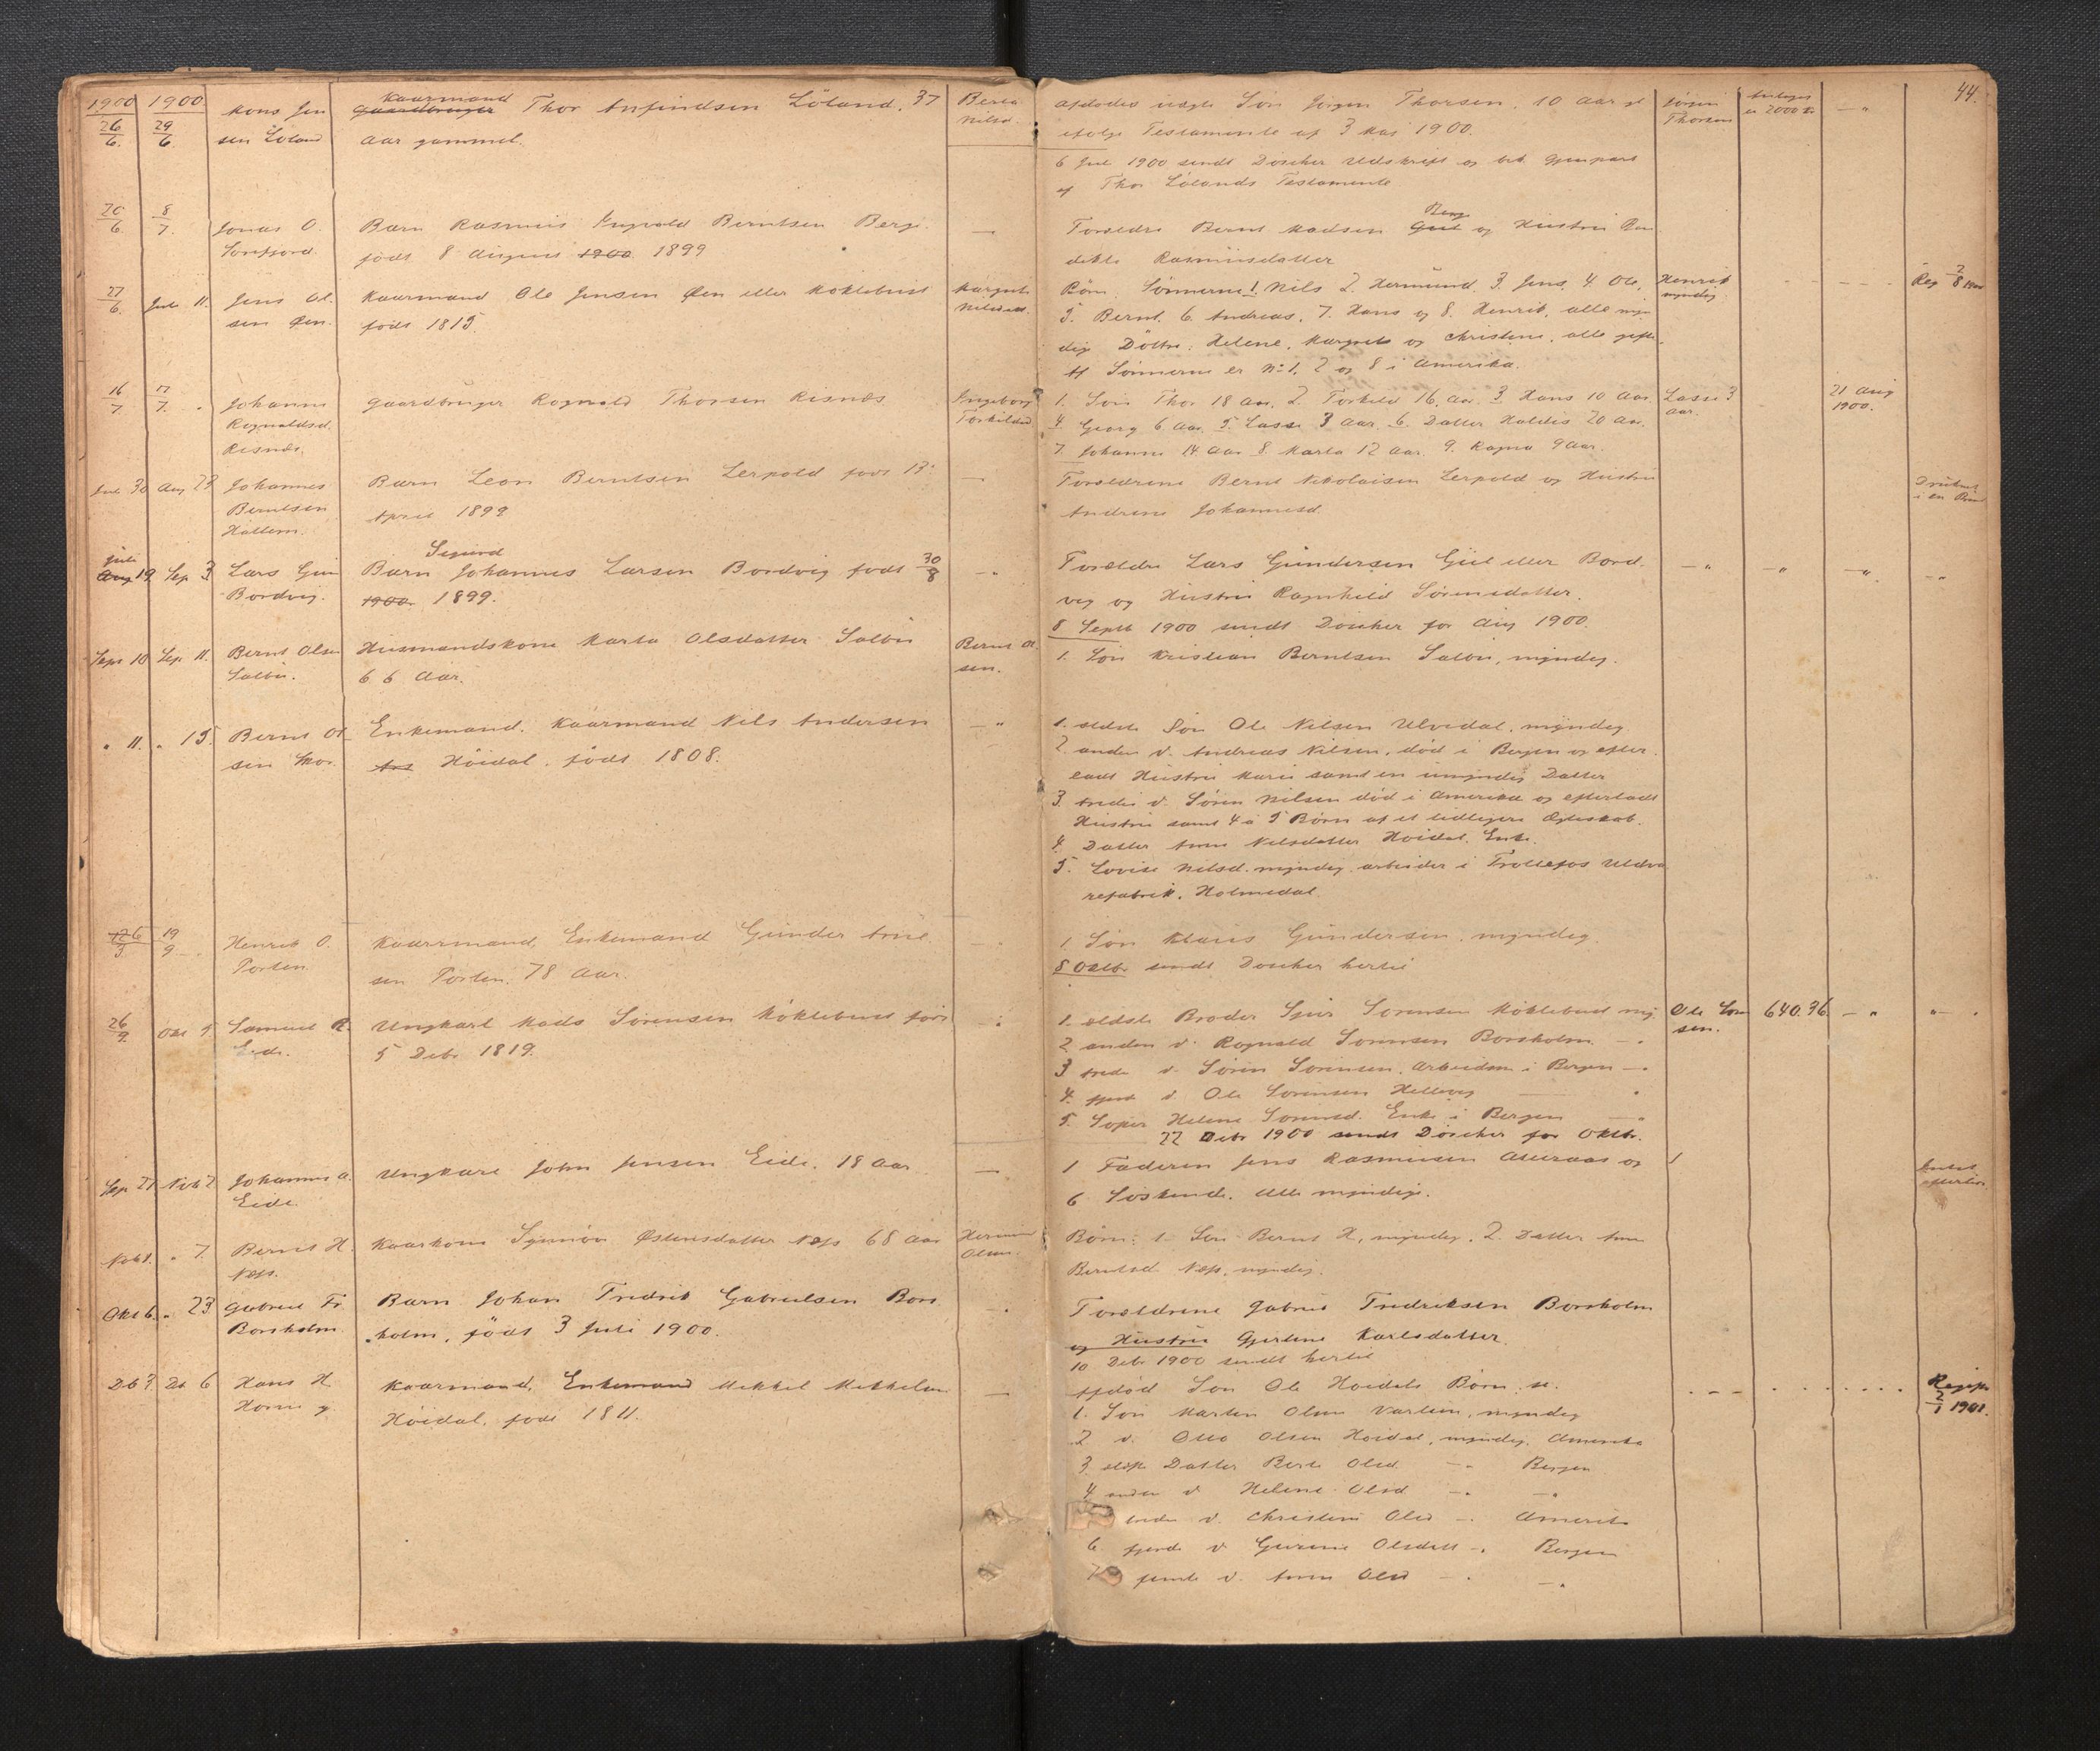 44.
1900 1900
26/6. 29/6
Mons Jen
sen Löland
Kaarmand
Gaardbruger Thor Anfindsen Löland. 37
Aar gammel.
Berta
Nilsd.
afdödes Søn Jörgen Thorsen. 10 Aar gl
ifølge Testamente af 3 Mai 1900.
Jörgen
Thorsen
Antages
2000 Kr
6 Juli 1900 sendt Döscher Udskrift og
af Thor Lölands Testamente
8/7.
Jonas O.
Sörefjord.
Barn Rasmus Ingvald Berntsen Berge.
født 8 August 1900 1899
Forældre Bernt Madsen og Hustru
Berge
dikte Rasmusdatter
27/6. Juli 11.
Jens Ol
sen Øen.
Kaarmand Ole Jensen Øen eller Møklebust
født 1815.
Margrete
Nilsdatt.
Børn. Sønnerne 1. Nils 2. Hermund. 3. Jens. 4. Ole.
5. Bernt. 6. Andreas. 7. Hans og 8. Henrik, alle myn
dige Døttre: Helene, Margrete og Christine, alle gifte.
Af Sønnerne er No 1. 2 og 8 i Amerika.
Henrik
myndig
Reg 2/8 1900
16/7 17/7.
Johanne
Rognaldsd.
Risnæs.
Gaardbruger Rognald Thorsen Risnæs
Ingeborg
Torkildsd
1. Søn Thor 18 Aar. 2. Torkild 16 Aar 3. Hans 10 Aar.
4. Georg 6 Aar. 5. Lasse 3 Aar. 6. Datter Haldis 20 Aar.
7. Johanne 14 Aar 8. Marta 12 Aar. 9. Ragna 9 Aar.
Lasse 3
Aar.
21 Aug
1900.
Juli 30 Aug 28
Johannes
Berntsen
Hatlem.
Barn Leon Berntsen Lerpold født 13
April 1899
Forældrene Bernt Nikolaisen Lerpold og Hustru
Andrine Johannesd.
Druknet
i en Brønd
Juli
Aug 19 Sep 3
Lars Gun
Bordvig.
Sigurd
Barn Johannes Larsen Bordvig født 30/8
1900. 1899.
Forældre Lars Gundersen Gul eller Bord-
vig og Hustru Ragnhild Sørensdatter.
8 Septb 1900 sendt Döscher for Aug 1900.
Sept 10 Sep 11.
Bernt Olsen
Salbu.
Husmandskone Marta Olsdatter Salbu
66 Aar.
Bernt Ol
sen.
1. Søn Kristian Berntsen Salbu, myndig.
" 11. " 15.
Bernt Ol
sen
Enkemand. Kaarmand Nils Andersen
Höidal. født 1808.
1. ældste Søn Ole Nilsen Ulvedal, myndig
2. anden d. Andreas Nilsen, død i Bergen og efter
ladt Hustru Marie samt en umyndig Datter
3. tredie d. Sören Nilsen død i Amerika og efterladt
Hustru samt 4 a 5 Børn af et tidligere Ægteskab.
4. Datter Anne Nilsdatter Höidal. Enke.
5. Lovise Nilsd. myndig, arbeider i Trollefos Uldva
refabrik. Holmedal.
19/9
Henrik O.
Torten.
Kaarmand, Enkemand Gunder
sen Torten. 78 Aar.
1. Søn Klaus Gundersen. myndig.
8 Oktbr sendt Döscher hertil
26/9 Okt 5.
Samuel R.
Eide.
Ungkarl Mads Sörensen Möklebust født
5 Debr. 1819.
1. ældste Broder Sjur Sörensen Möklebust myn.
2 anden d. Rognald Sörensen Borsholm
3 tredie d. Sören Sörensen. Arbeidsm i Bergen
4. fjerde d. Ole Sörensen Hellevig
5. Søster Helene Sörensd. Enke i Bergen
22 Debr 1900 sendt Döscher for Oktbr.
Ole Sören
sen.
640.36.
Sep 21 Nvb 2
Johannes A.
Eide
Ungkarl John Jensen Eide. 18 Aar
1 Faderen Jens Rasmussen Aaraas og
6 Søskende. Alle myndige.
Intet
efterlod
Nvb 1. " 7.
Bernt H.
Næss.
Kaarkone Synnöve Østensdatter Næss 68 Aar
Hermund
Olsen.
Børn: 1. Søn Bernt H, myndig. 2. Datter Anne
Berntsd. Næss, myndig.
Okt 6. " 23
Gabriel Fr.
Borsholm.
Barn Johan Fredrik Gabrielsen Bors
holm, født 3 Juli 1900.
Forældrene Gabriel Fredriksen Borsholm
og Hustru Gjertine Karlsdatter
10 Debr 1900 sendt hertil
Db 3 Db 6
Hans H.
Horne
Kaarmand, Enkemand Mikkel Mikkelsen
Höidal, født 1811.
Afdød Søn Ole Höidals Børn.
1. Søn Marten Olsen Varlein, myndig
2 d. Otto Olsen Höidal, myndig. Amerika
3. ældste Datter Berte Olsd. Bergen
4 anden d Helene Olsd
tredie d. Christine Olsd Amerika
6 fjerde d Olsdatt Bergen
7 femte d. Anne Olsd
2/1 1901.